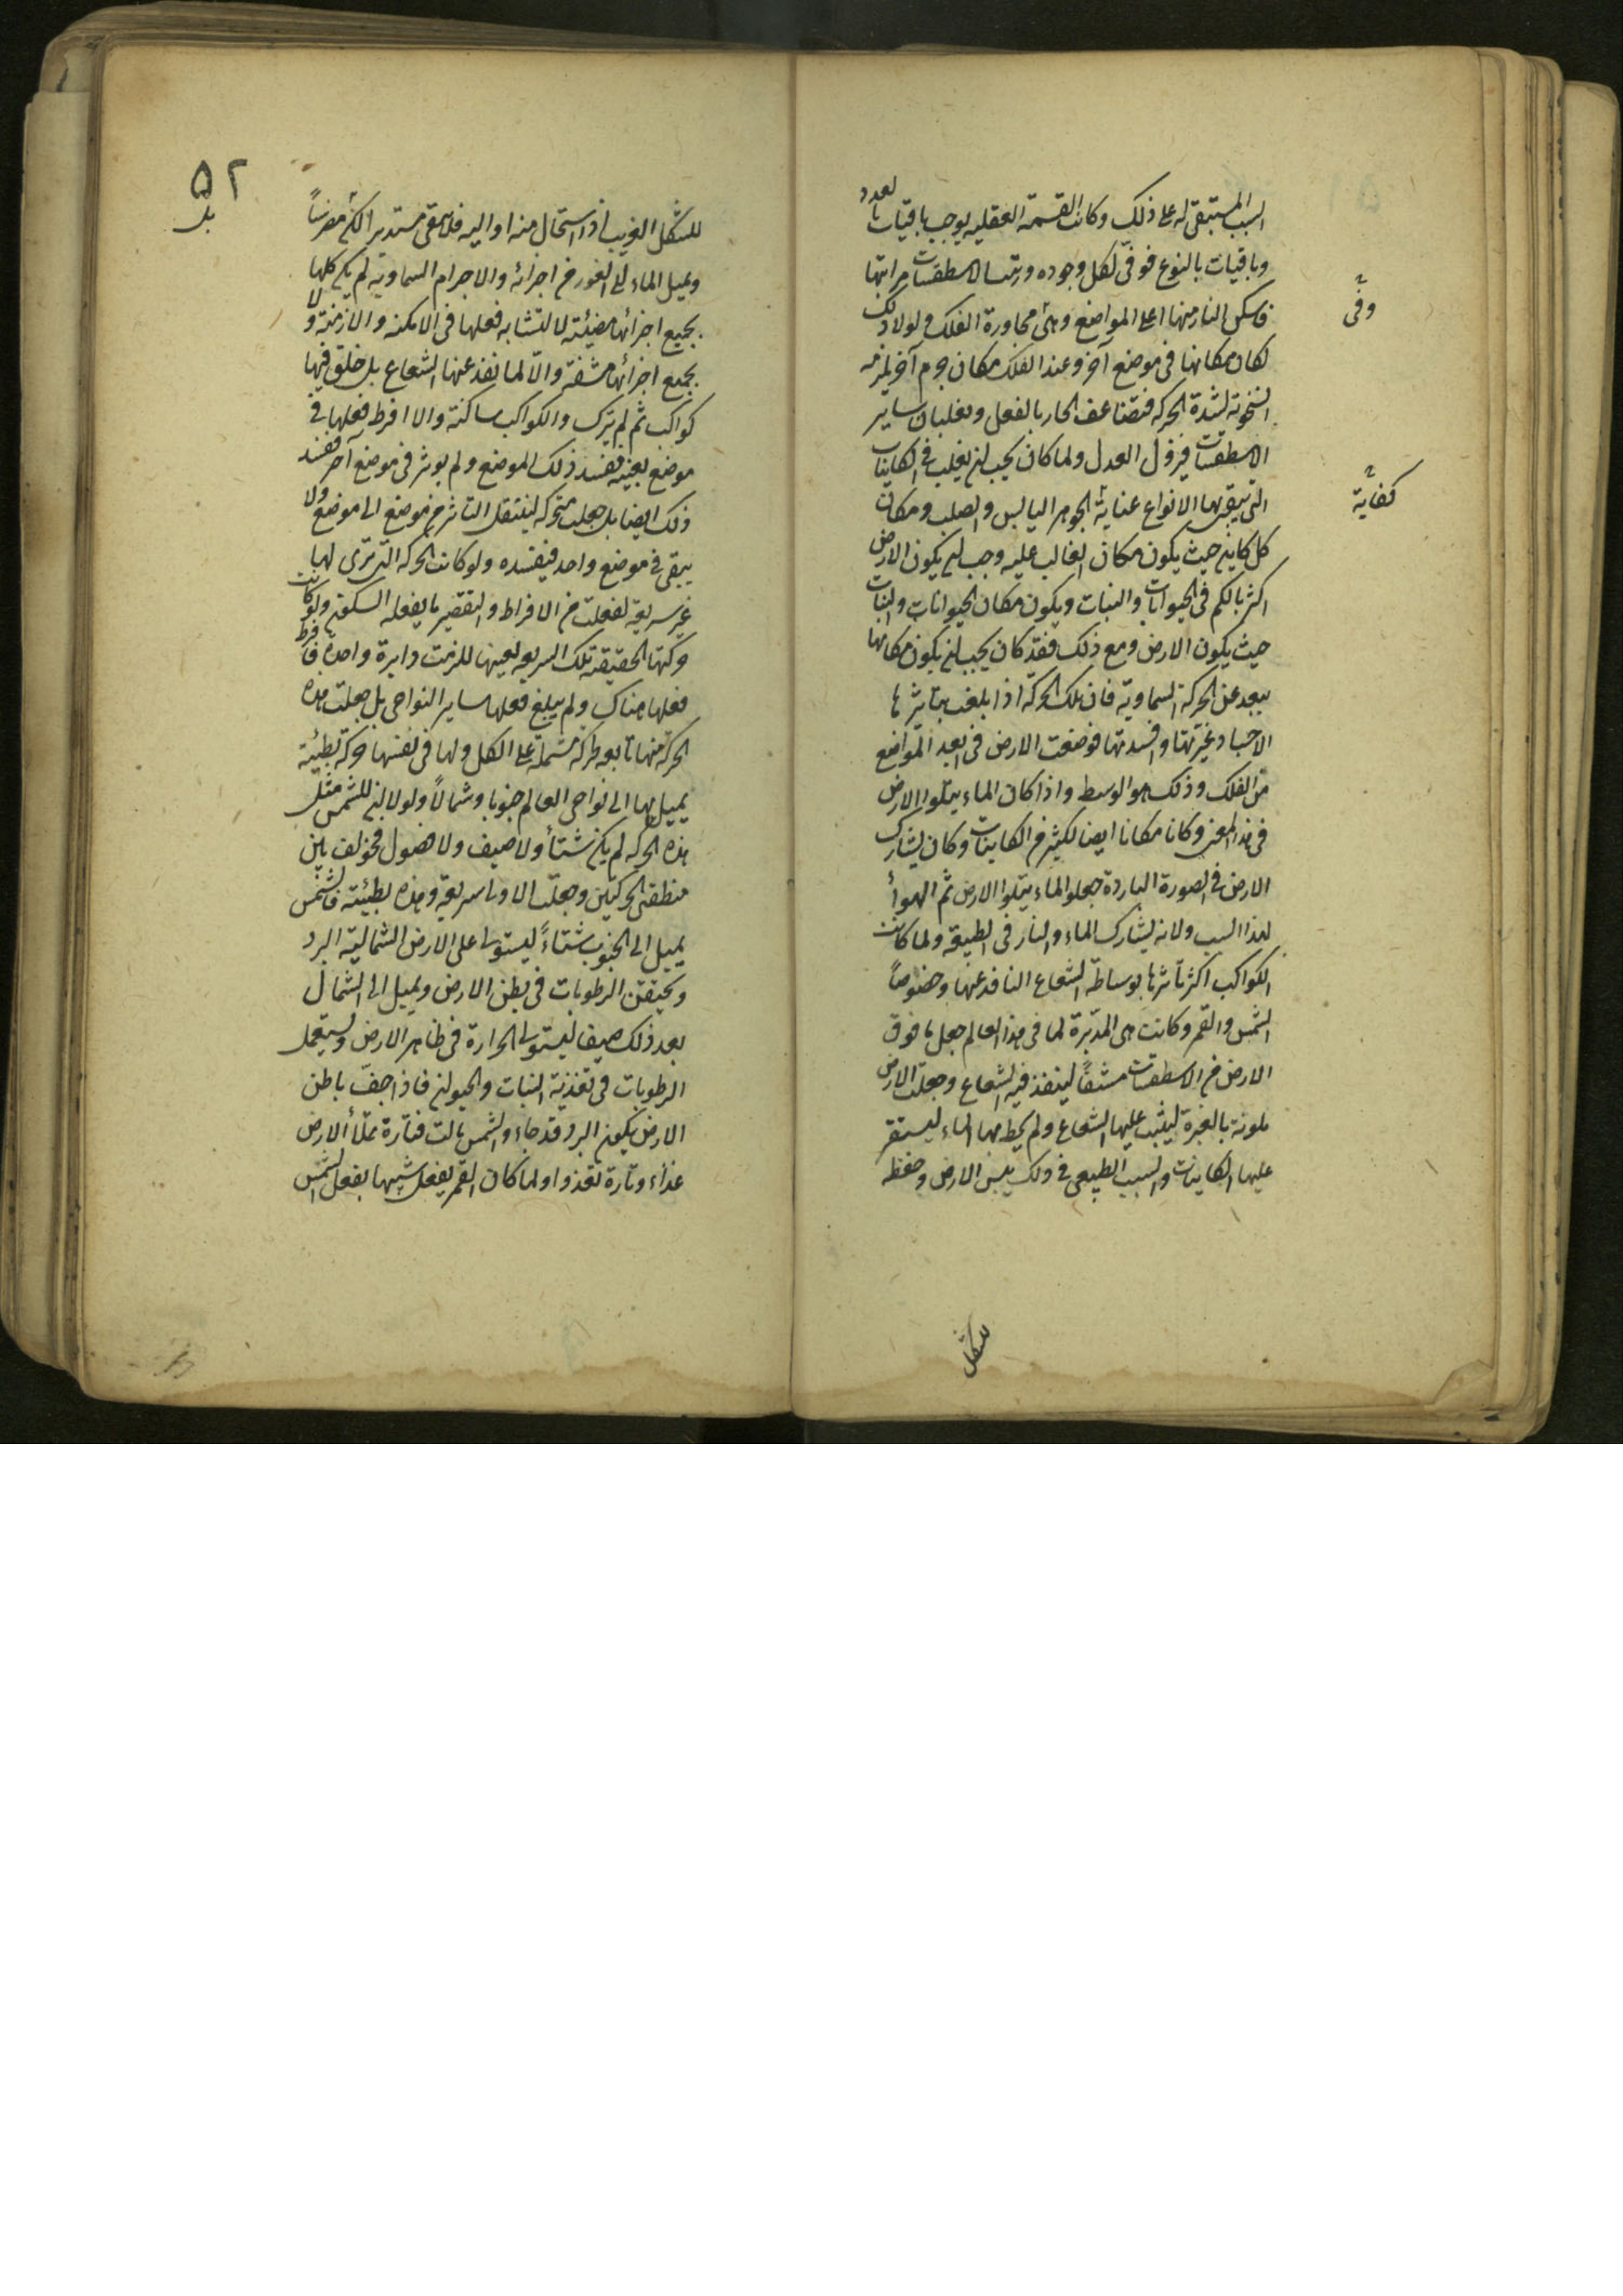 السبب المستبقى له على ذلك وكانت القسمة العقلية يوجب باقيات بالعدد
وباقيات بالنوع فوفى لكل وجوده ورتبت الاسطقسات مراتبها
فاسكن النار منها اعلى المواضع وهى مجاورة الفلك ولولا ذلك
لكان مكانها فى موضع آخر وعند الفلك مكان جرم آخر يلزمه
السخونة لشدة الحركة فتضاعف الحار بالفعل ويغلبان ساير
الاسطقسات فيزول العدل ولما كان يجب ان يغلب فى الكاينات
التى تبقى بها الانواع عناية الجوهر اليابس والصلب ومكان
كل كاين حيث يكون مكان الغالب عليه وجب ان يكون الارض
اكثر بالكم فى الحيوانات والنبات ويكون مكان الحيوانات والنبات
حيث يكون الارض ومع ذلك فقد كان يجب ان يكون مكانها
يبعد عن الحركة السماوية فان تلك الحركة اذا بلغت بتاثيرها
الاجساد غيرتها وافسدتها فوضعت الارض فى ابعد المواضع
من الفلك وذلك هو الوسط واذا كان الماء يتلوا الارض
فى هذا المعنى وكان مكانا ايضا لكثير من الكاينات وكان يشارك
الارض فى الصورة الباردة جعل الماء يتلوا الارض ثم الهوأ
لهذا السبب ولانه يشارك الماء والنار فى الطبيعة ولما كانت
الكواكب اكثر تاثيرها بوساطة الشعاع النافذ عنها وخصوصاً
الشمس والقمر وكانت هى المدبرة لما فى هذا العالم جعل ما فوق
الارض من الاسطقسات مشفاً لينفذ فيه الشعاع وجعلت الارض
ملونة بالغبرة ليثبت عليها الشعاع ولم يحط بها الماء ليستقر
عليها الكاينات والسبب الطبيعى فى ذلك يبس الارض وحفظه
وفى
كفاية
للشكل
٥٢
للشكل الغريب اذا استحال منه او اليه فلا يبقى مستديرا لكن مضرساً
ويميل الماء الى الغور من اجزائه والاجرام السماوية لم يكن كلها
بجميع اجزائها مضيئة لا لتشابه فعلها فى الامكنة والازمنة ولا
بجميع اجزائها مشفة والا لما نفذ عنها الشعاع بل خلق فيها
كواكب ثم لم يترك والكواكب ساكنة والا افرط فعلها فى
موضع بعينه فيفسد ذلك الموضع ولم يوثر فى موضع آخر فيفسد
ذلك ايضا بل جعلت متحركة لينتقل التاثير من موضع الى موضع ولا
يبقى فى موضع واحد فيفسده ولو كانت الحركة التى ترى لها
غير سريعة لفعلت من الافراط والتقصير ما يفعله السكون ولو كانت
حركتها الحقيقة تلك السريعة بعينها للزمت دايرة واحدة فافرط
فعلها هناك ولم يبلغ فعلها ساير النواحى بل جعلت هذه
الحركة منها تابعة لحركة مشتملة على الكل ولها فى نفسها حركة بطيئة
يميل بها الى نواحى العالم جنوبا وشمالاً ولولا ان للشمس مثل
هذه الحركة لم يكن شتأ ولا صيف ولا فصول فخولف بين
منطقتى الحركتين وجعلت الاولى سريعة وهذه بطيئة فالشمس
يميل الى الجنوب شتاءً ليستولى على الارض الشمالية البرد
ويحتقن الرطوبات فى بطن الارض ويميل الى الشمال
بعد ذلك صيفا ليستولى الحرارة فى ظاهر الارض ويستعمل
الرطوبات فى تغذية النبات والحيوان فاذا جف باطن
الارض يكون البرد قد جاء والشمس مالت فتارة يملأ الارض
غذاء وتارة تغذوا ولما كان القمر يفعل شبيها بفعل الشمس